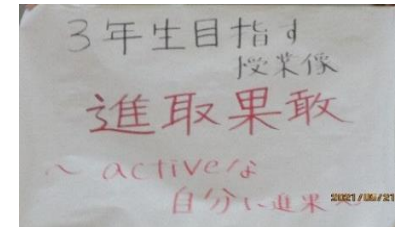 3年生目指す
授業像
進取果敢
～activeな
自分に進
2021/06/21